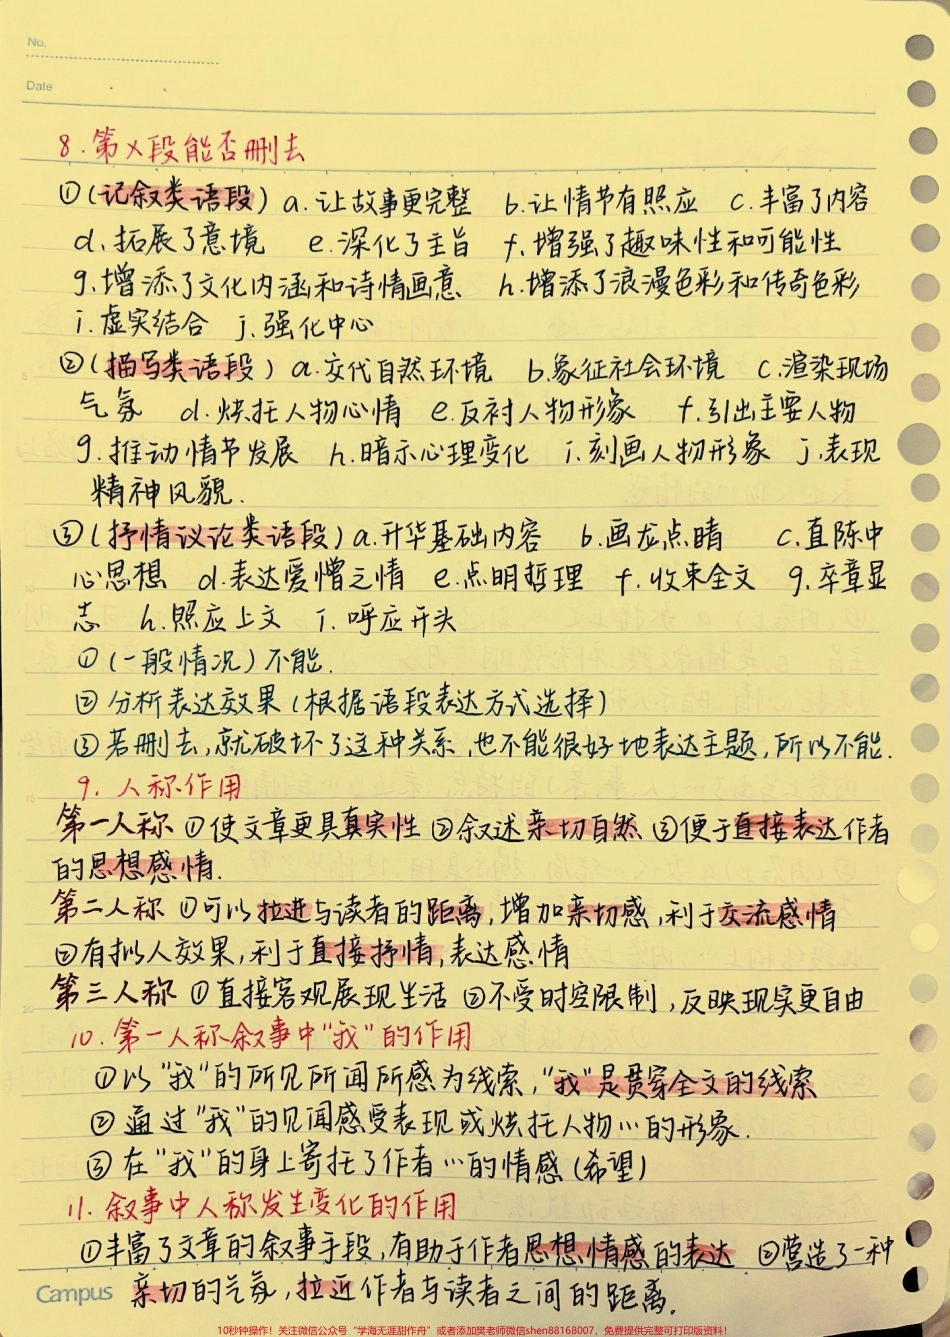 No.
Date
8.第X段能否删去
①(记叙类语段) a.让故事更完整 b.让情节有照应 c.丰富了内容
d.拓展了意境 e.深化了主旨 f.增强了趣味性和可能性
g.增添了文化内涵和诗情画意 h.增添了浪漫色彩和传奇色彩
i.虚实结合 j.强化中心
②(描写类语段) a.交代自然环境 b.象征社会环境 c.渲染现场
气氛 d.烘托人物心情 e.反衬人物形象 f.引出主要人物
g.推动情节发展 h.暗示心理变化 i.刻画人物形象 j.表现
精神风貌.
③(抒情议论类语段) a.升华基础内容 b.画龙点睛 c.直陈中
心思想 d.表达爱憎之情 e.点明哲理 f.收束全文 g.卒章显
志 h.照应上文 i.呼应开头
①(一般情况)不能.
②分析表达效果(根据语段表达方式选择)
③若删去,就破坏了这种关系,也不能很好地表达主题,所以不能.
9.人称作用
第一人称 ①使文章更具真实性 ②叙述亲切自然 ③便于直接表达作者
的思想感情.
第二人称 ①可以拉进与读者的距离,增加亲切感,利于交流感情
②有拟人效果,利于直接抒情,表达感情
第三人称 ①直接客观展现生活 ②不受时空限制,反映现实更自由
10.第一人称叙事中"我"的作用
①以"我"的所见所闻所感为线索,"我"是贯穿全文的线索
②通过"我"的见闻感受表现或烘托人物…的形象.
③在"我"的身上寄托了作者…的情感(希望)
11.叙事中人称发生变化的作用
①丰富了文章的叙事手段,有助于作者思想情感的表达 ②营造了一种
亲切的气氛,拉近作者与读者之间的距离.
Campus
10秒钟操作!关注微信公众号"学海无涯甜作舟"或者添加樊老师微信shen88168007,免费提供完整可打印版资料!